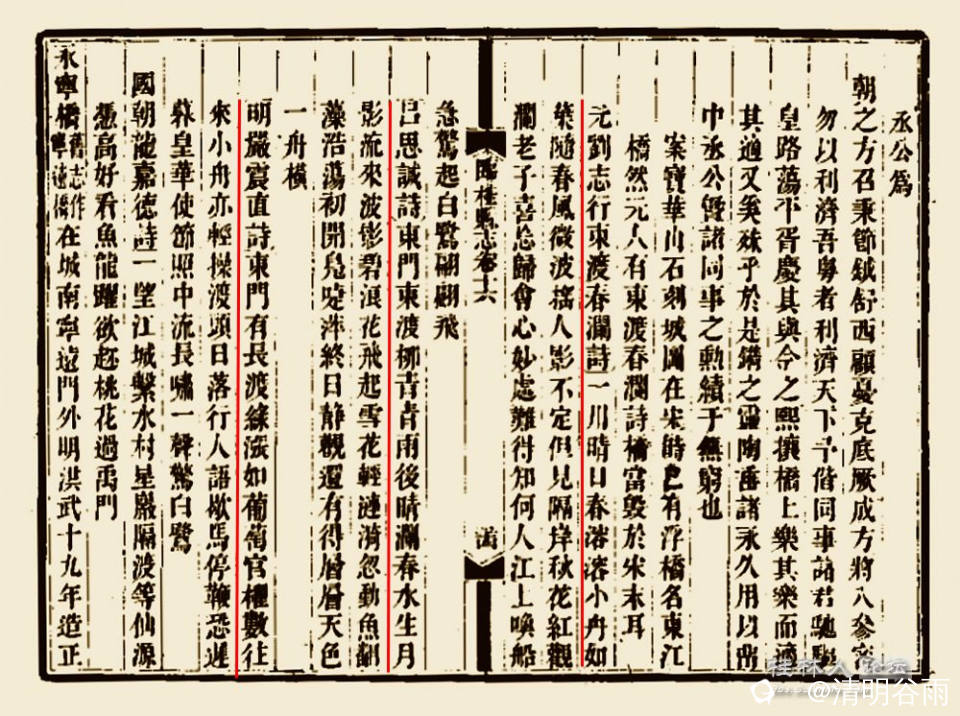 丞公為
朝之方召秉節鉞舒西顧憂克底厥成方將入參密
勿以利濟吾粵者利濟天下予偕同事諸君馳驅
皇路蕩平胥慶其與今之熙攘橋上樂其樂而濟
其適又奚殊乎於是鐫之靈陶垂諸永久用以齊
中丞公暨諸同事之勳績于無窮也
案寶華山石刻城圖在宋時已有浮橋名東江
橋然元人有東渡春瀾詩橋當毀於宋末耳
元劉志行東渡春瀾詩一川晴日春溶溶小舟如
葉隨春風微波搖人影不定但見隔岸秋花紅觀
瀾老子喜忘歸會心妙處難得知何人江上喚船
急驚起白鷺翩翩飛
臨桂縣志卷十六
呂思誠詩東門東渡柳青青雨後晴瀾春水生月
影流來波影碧浪花飛起雪花輕漣漪忽動魚翻
藻浩蕩初開鳧唼萍終日靜觀還有得層層天色
一舟橫
明嚴震直詩東門有長渡綠漲如葡萄官櫂數往
來小舟亦輕操渡頭日落行人語歇馬停鞭恐遲
暮皇華使節照中流長嘯一聲驚白鷺
國朝龍嘉德詩一望江城繫水村星巖隔渡等仙源
憑高好看魚龍躍欲趁桃花過禹門
永寧橋舊志作寧遠橋在城南寧遠門外明洪武十九年造正
桂林人論壇
@清明谷雨